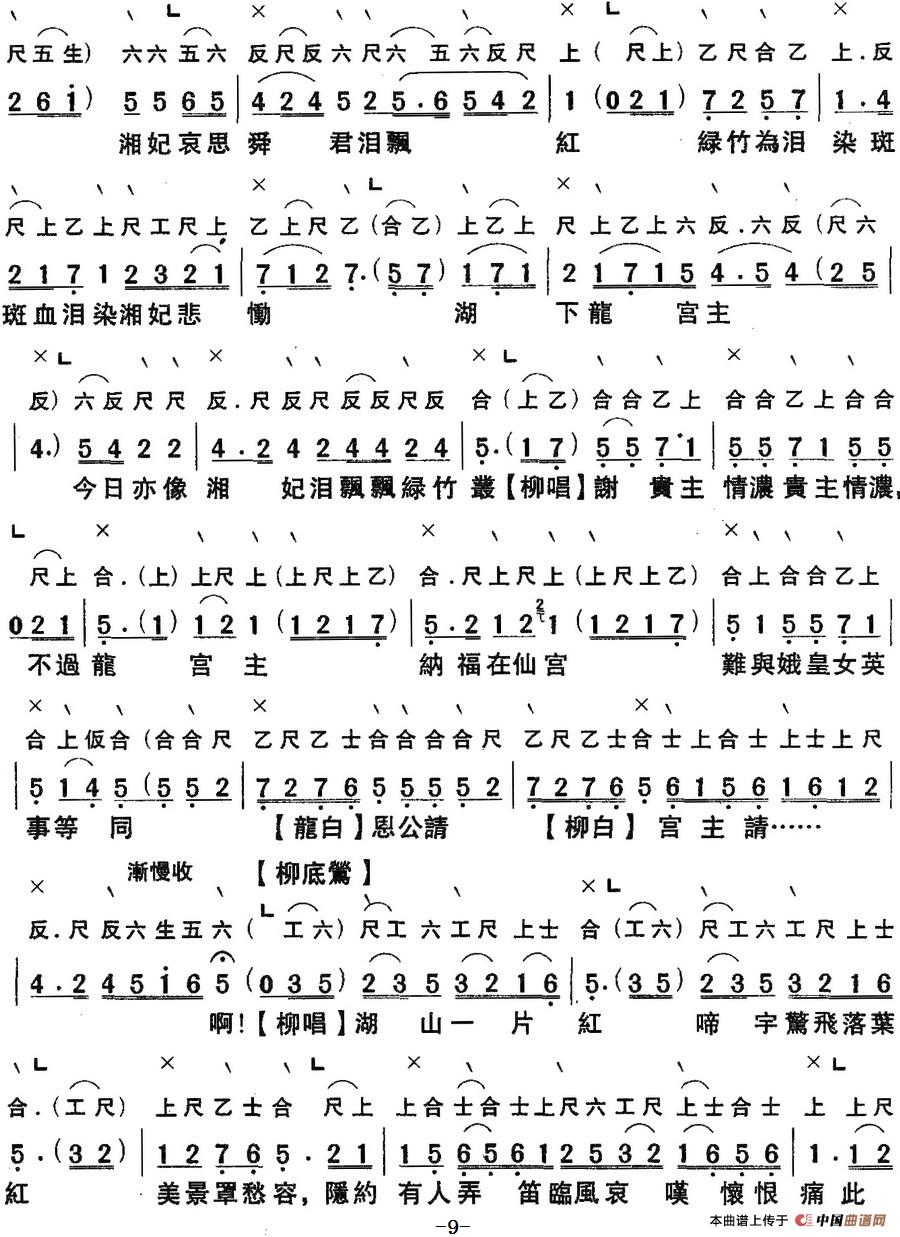 尺五生） 六六五六 反尺反六尺六 五六反尺 上（ 尺上）乙尺合乙 上.反
2 6 i） 5 5 6 5 | 4 2 4 5 2 5.6 5 4 2 | 1（0 2 1）7 2 5 7 | 1.4
湘妃哀思舜 君泪飄 紅 緑竹為泪 染斑
尺上乙上尺工尺上 乙上尺乙（合乙）上乙上 尺上乙上六反.六反（尺六
2 1 7 1 2 3 2 1 | 7 1 2 7.（5 7）1 7 1 | 2 1 7 1 5 4.5 4（2 5 |
斑血泪染湘妃悲 慟 湖 下龍 宫主
反）六反尺尺 反.尺反尺反反尺反 合（上乙）合合乙上 合合乙上合合
| 4.）5 4 2 2 | 4.2 4 2 4 4 2 4 | 5.（1 7）5 5 7 1 | 5 5 7 1 5 5
今日亦像湘 妃泪飄飄緑竹叢【柳唱】謝 貴主 情濃貴主情濃，
尺上 合.（上）上尺上（上尺上乙）合.尺上尺上（上尺上乙） 合上合合乙上
0 2 1 | 5.（1）1 2 1（1 2 1 7）| 5.2 1 2 1（1 2 1 7）| 5 1 5 5 7 1 |
不過龍 宫 主 納福在仙宫 難與娥皇女英
合上仮合（合合尺 乙尺乙士合合合合尺 乙尺乙士合士上合士上士上尺
| 5 1 4 5（5 5 2 | 7 2 7 6 5 5 5 5 2 | 7 2 7 6 5 6 1 5 6 1 6 1 2 |
事等 同 【龍白】恩公請 【柳白】宫主請……
漸慢收 【柳底鶯】
反.尺反六生五六（ 工六）尺工六工尺上士 合（工六）尺工六工尺上士
| 4.2 4 5 i 6 5（0 3 5）2 3 5 3 2 1 6 | 5.（3 5）2 3 5 3 2 1 6
啊！【柳唱】湖 山一 片 紅 啼 字驚飛落葉
合.（工尺） 上尺乙士合 尺上 上合士合士上尺六工尺 上士合士 上 上尺
5.（3 2）| 1 2 7 6 5.2 1 | 1 5 6 5 6 1 2 5 3 2 1 6 5 6 | 1.1 2
紅 美景罩愁容，隱約 有人弄 笛臨風哀 嘆 懷恨 痛此
-9-
本曲谱上传于 中国曲谱网